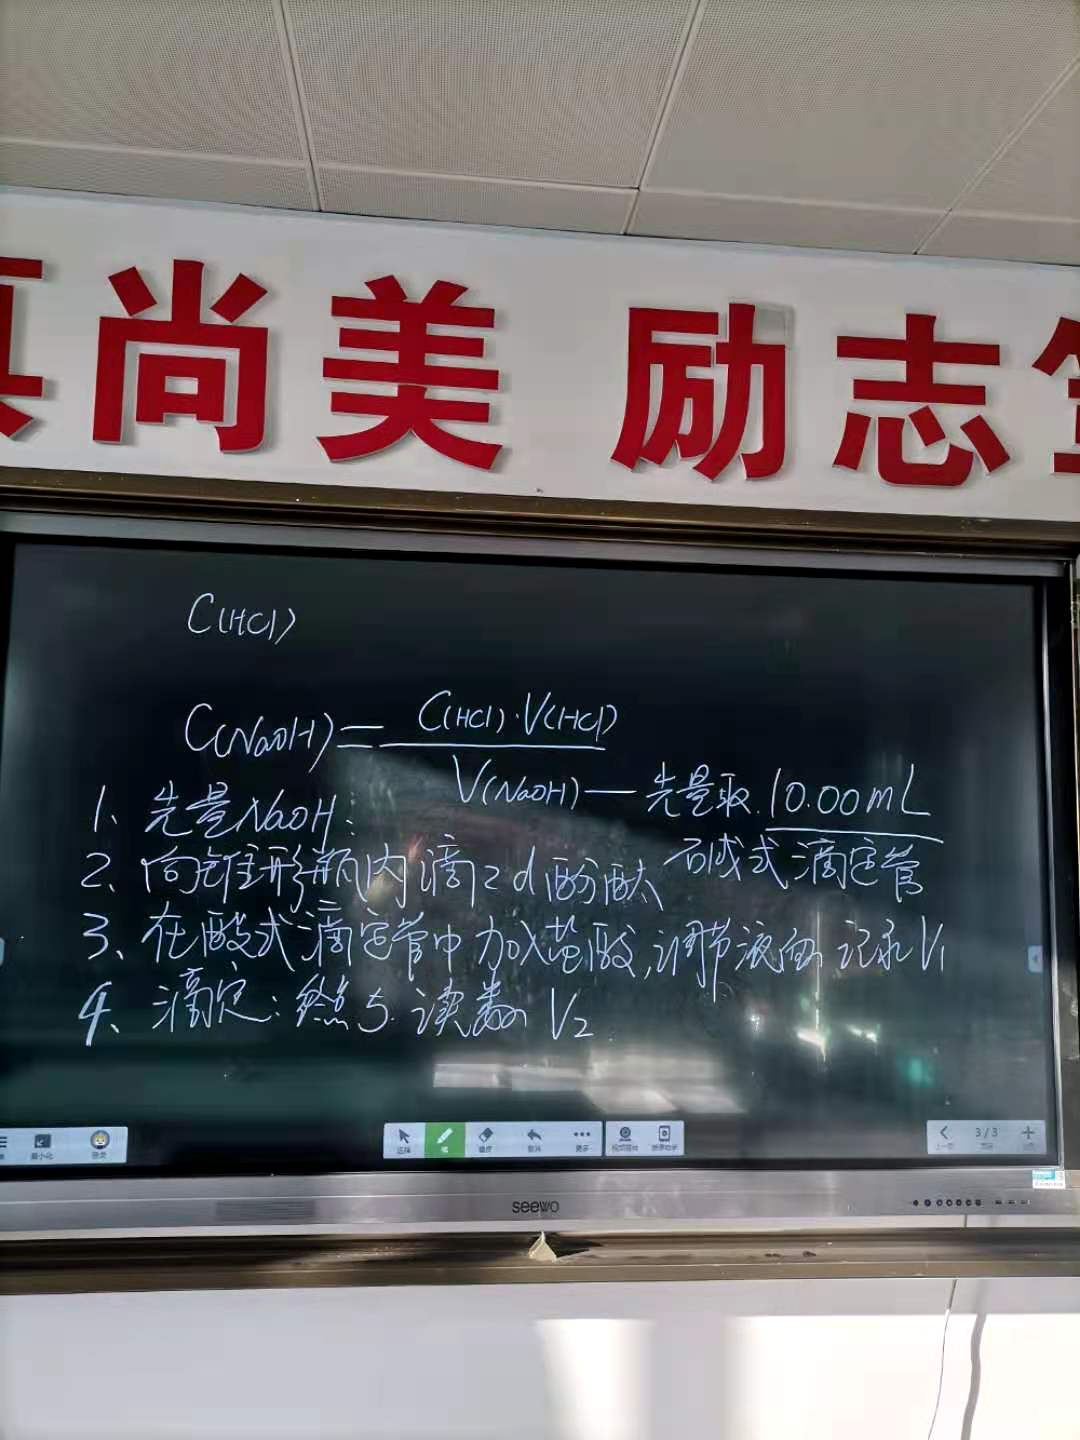 尚美 励志
C(HCl)
C(NaOH)=C(HCl)·V(HCl)
V(NaOH)—先量取 10.00mL
1、先量NaOH:
碱式滴定管
2、向锥形瓶内滴2d酚酞
3、在酸式滴定管中加入盐酸,调节液面 记录V1
4、滴定:终点 读数 V2
选择
更多
3/3
seewo